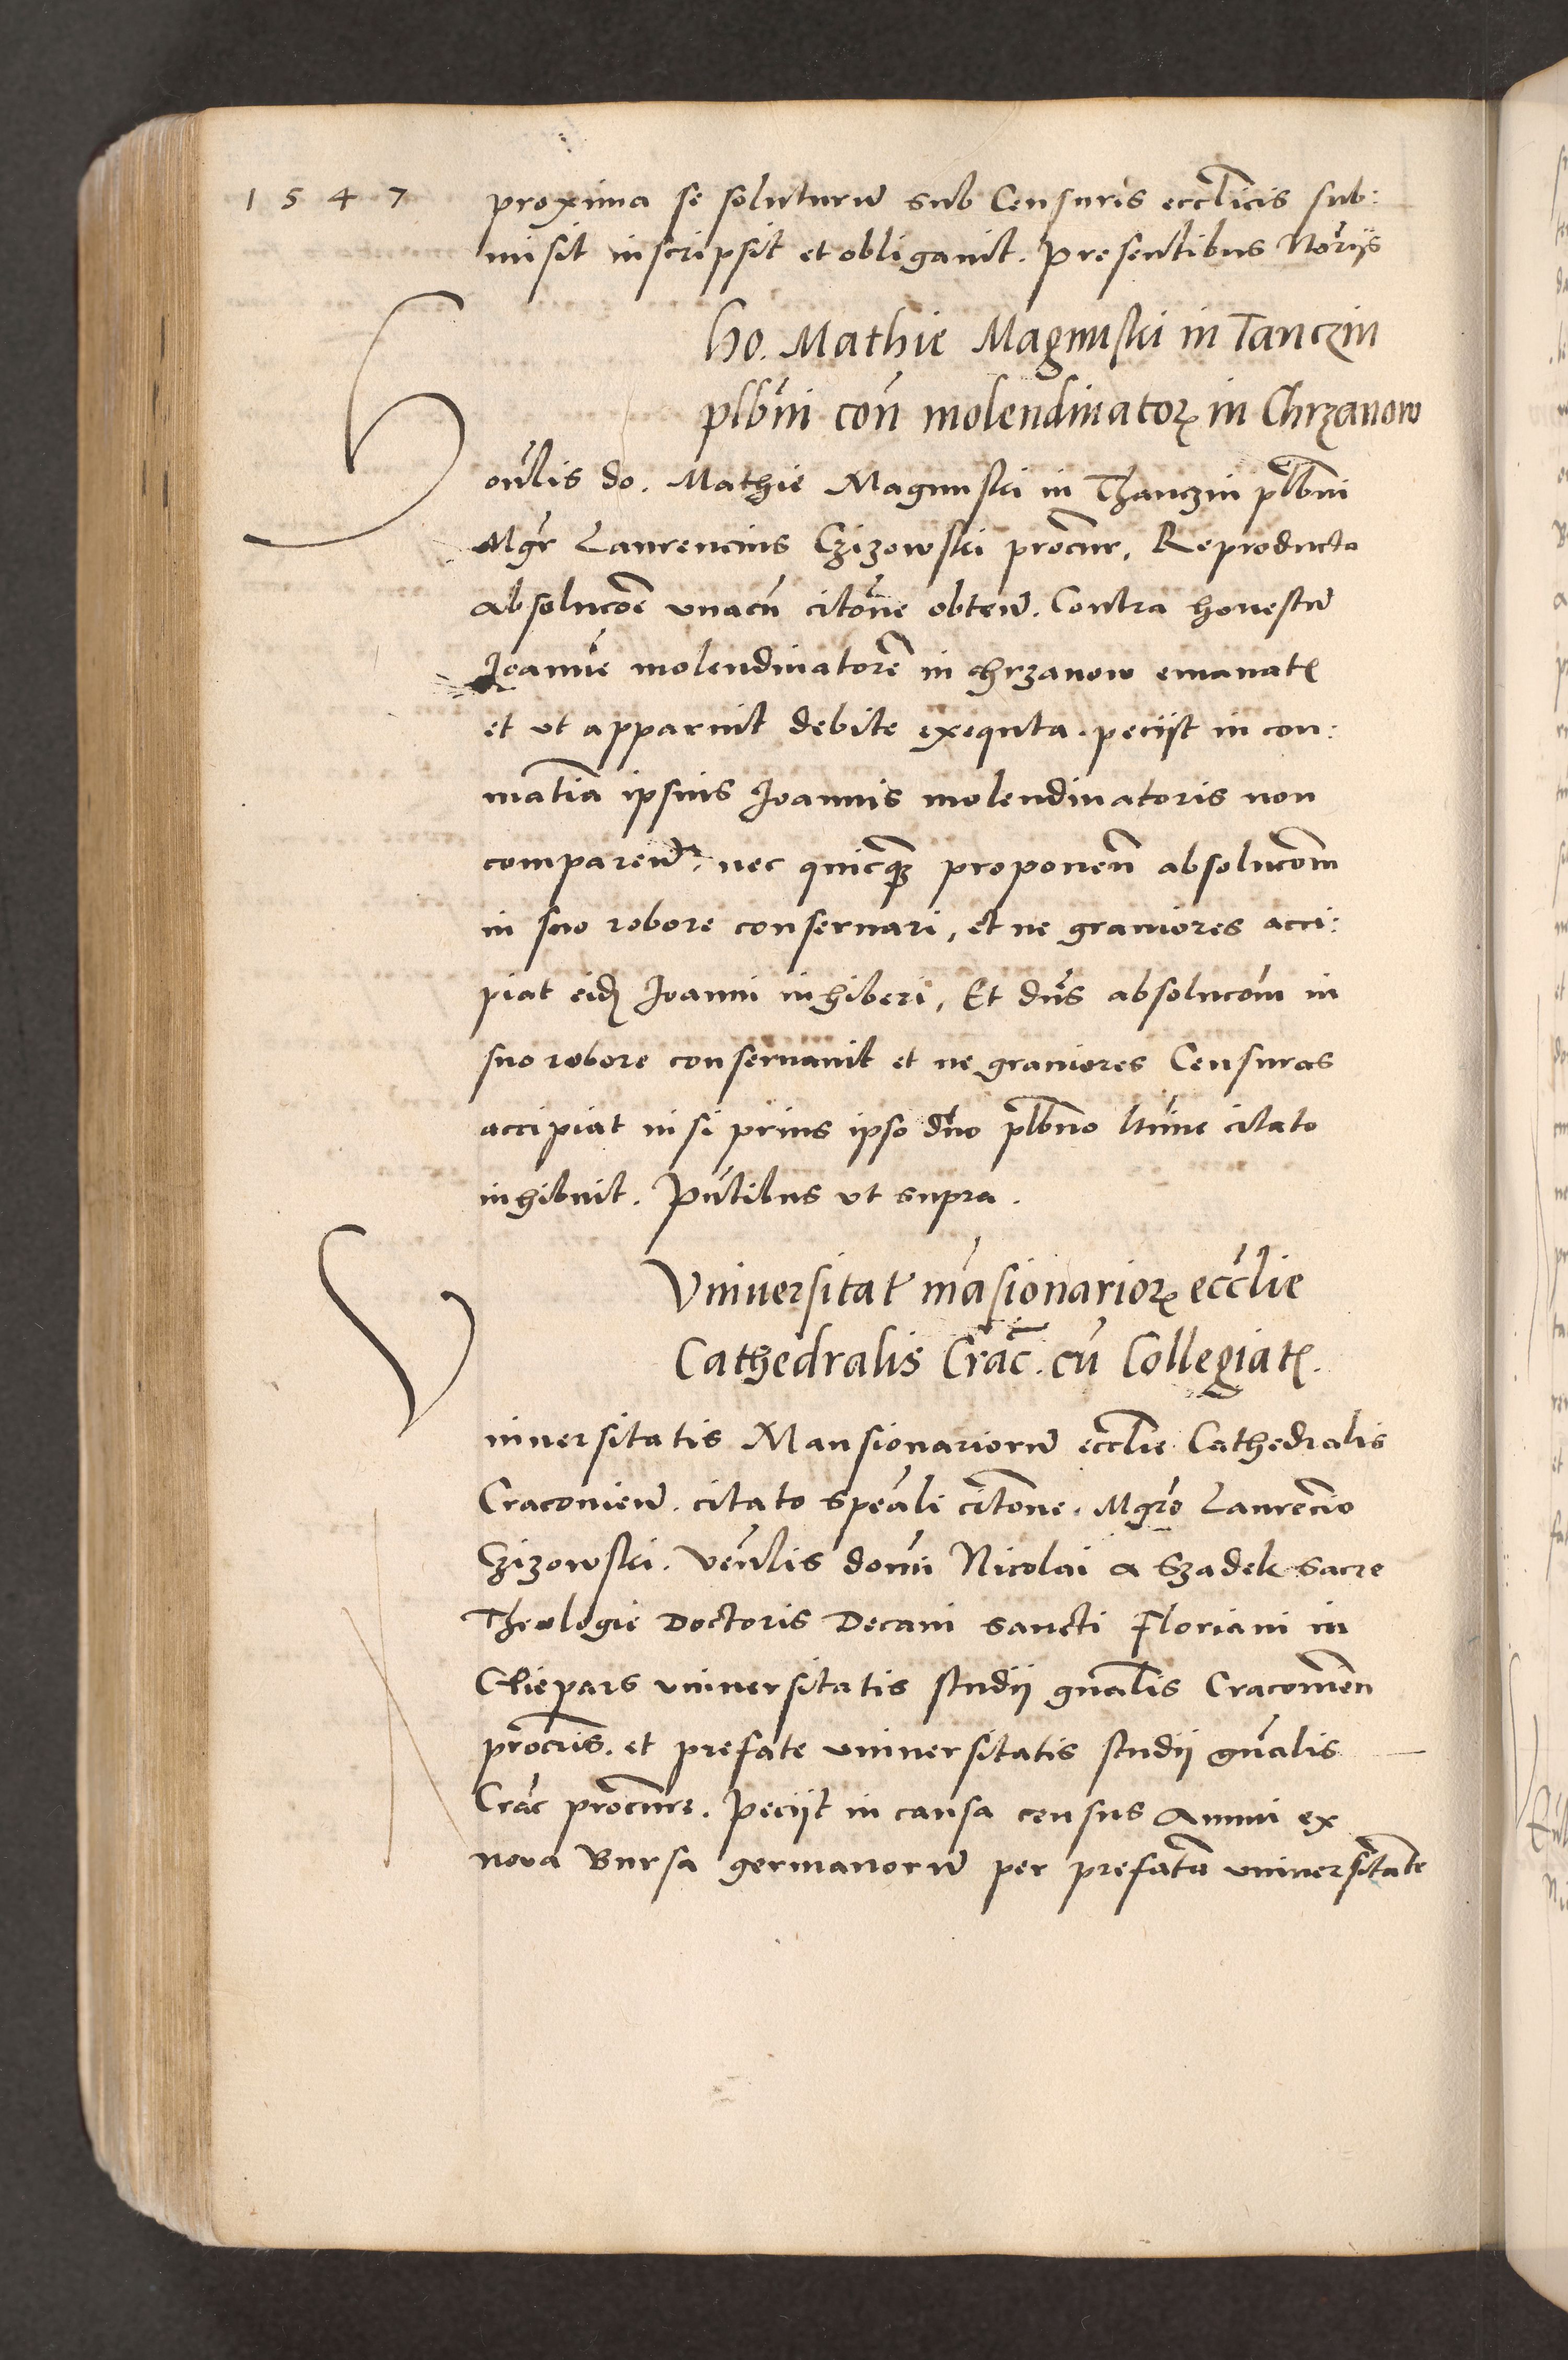 1547
proxima se soluturū sub Censuris ecclīcis sub:
misit inscripsit et obligavit. Presentibus Norijs
Ho. Mathie Magnuski in Tanczin
plbni con̄ molendinatorꝫ in Chrzanow
Honlis do. Mathie Magnuski in Thanczin plbni
Mgr Laurencius Czizowski procur. Reproducta
absolucoē unacū citone obtem̄. Contra honestū
Joannē molendinatorē in chrzanow emanatꝫ
et ut apparuit debite exequta. peciit in con:
matia ipsius Joannis molendinatoris non
comparen̄. nec quicqꝫ proponen̄ absolucom̄
in suo robore conservari, et ne graviores acci:
piat eidꝫ Joanni inhiberi, Et dn̄s absolucom̄ in
suo robore conservavit et ne graviores Censuras
accipiat nisi prius ipso dn̄o plbno ltime citato
inhibuit. Pn̄tibus ut supra.
Universitat māsionariorꝫ eccl̄ie
Cathedralis Crac̄. cū Collegiatꝫ.
Universitatis Mansionariorū eccl̄ie Cathedralis
Cracovien̄. citato speāli citone. Mgrō Laurēcio
Czizowski. Ven̄lis domī Nicolai a Szadek sacre
Theologie Doctoris Decani sancti Floriani in
Cliepars universitatis studij gnālis Cracovien̄
procris. et prefate universitatis studij gnālis
Crac̄ procure. Peciit in causa census Annui ex
nova Bursa germanorū per prefatā universitatē